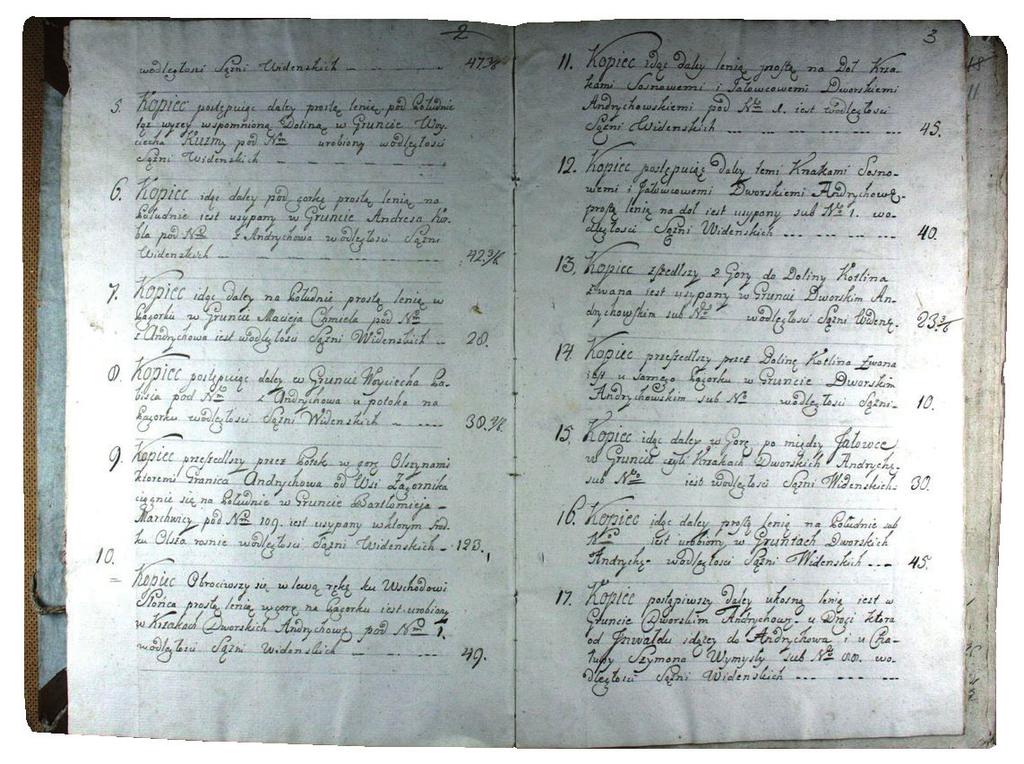 2
wodległości Sążni Widenskich — — — — 47 3/6
5. Kopiec postępuiąc daley prostą lenią, pod Południe
tąż wyzey wspomnioną Doliną w Gruncie Woy-
ciecha Kuzmy pod Nro urobiony wodległości
Sążni Widenskich — — — —
6. Kopiec idąc daley pod gorkę prostą lenią na
Południe iest usypany w Gruncie Andresa
pod Nro z Andrychowa wodległości Sążni
Widenskich — — — — 42 3/6
7. Kopiec idąc daley na Południe prostą lenią w
Pagorku w Gruncie Macieja Chmiela pod Nro
z Andrychowa iest wodległości Sążni Widenskich — 28.
8. Kopiec postępuiąc daley w Gruncie Woyciecha Ba-
bisia pod Nro z Andrychowa u potoka na
Pagorku wodległości Sążni Widenskich — — 30. 3/6
9. Kopiec przeszedłszy przez Potok w gorę Olszynami
ktoremi Granica Andrychowa od Wsi Zagornika
ciągnie się na Południe w Gruncie Bartłomieja
Marchwicy pod Nro 109. iest usypany wktorym środ-
ku Olsza rosnie wodległości Sążni Widenskich — 123.
10. Kopiec Obrociwszy się w lewą rękę ku Wschodowi
Słonca prostą lenią wgorę na Pagorku iest urobiony
w Krzakach Dworskich Andrychow: pod Nro 1.
wodległości Sążni Widenskich — — — 49.
3
11. Kopiec idąc daley lenią prostą na Doł Krza-
kami Sosnowemi i Jałowcowemi Dworskiemi
Andrychowskiemi pod Nro 1. iest wodległości
Sążni Widenskich — — — — — — 45.
12. Kopiec postępuiąc daley temi Krzakami Sosno-
wemi i Jałowcowemi Dworskiemi Andrychow:
prostą lenią na doł iest usypany sub Nro 1. wo-
dległości Sążni Widenskich — — — — 40.
13. Kopiec zszedłszy z Gory do Doliny Kotlina
zwana iest usypany w Gruncie Dworskim An-
drychowskim sub Nro wodległości Sążni Widens. 23 3/6
14. Kopiec przeszedłszy przez Dolinę Kotlina zwana
iest u samego Pagorku w Gruncie Dworskim
Andrychowskim sub No wodległości Sążni — 10.
15. Kopiec idąc daley w Gorę po między Jałowce
w Gruncie czyli Krzakach Dworskich Andrych:
sub Nro iest wodległości Sążni Widenskich 30.
16. Kopiec idąc daley prostą lenią na Południe sub
Nro iest urobiony w Gruntach Dworskich
Andrych: wodległości Sążni Widenskich — — — 45.
17. Kopiec postąpiwszy daley ukosną lenią iest w
Gruncie Dworskim Andrychow: u Drogi ktora
od Inwałdu idzey do Andrychowa i u Cha-
łupy Szymona Wymysły sub Nro 88. wo-
dległości Sążni Widenskich — — — — —